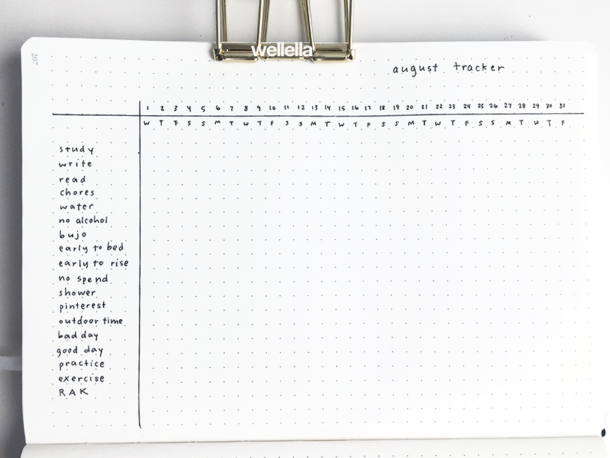 wellella
august tracker
1 2 3 4 5 6 7 8 9 10 11 12 13 14 15 16 17 18 19 20 21 22 23 24 25 26 27 28 29 30 31
W T F S S M T W T F S S M T W T F S S M T W T F S S M T W T F
study
write
read
chores
water
no alcohol
bujo
early to bed
early to rise
no spend
shower
pinterest
outdoor time
bad day
good day
practice
exercise
RAK